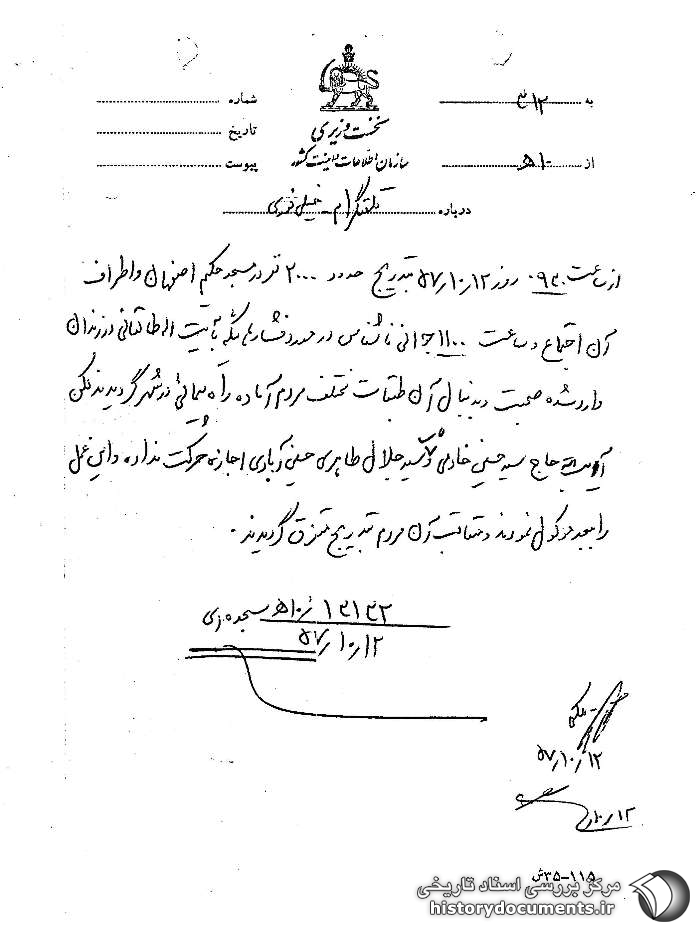 به ۳۱۲
شماره
نخست وزیری
تاریخ
سازمان اطلاعات و امنیت کشور
از ۱۰ه
پیوست
درباره تلفنگرام - خیلی فوری
از ساعت ۰۹۳۰ روز ۵۷/۱۰/۱۲ بتدریج حدود ۲۰۰۰ نفر در مسجد حکیم اصفهان و اطراف
آن اجتماع و ساعت ۱۱۰۰ جوانی ناشناس در مورد فشارهائیکه بآیت اله طالقانی و فرزندان
وارد شده صحبت و بدنبال آن طبقات مختلف مردم آماده راه پیمائی در شهر گردیدند لکن
آیت اله حاج سید حسین خادمی و سید جلال طاهری حسین آبادی اجازه حرکت نداده و این عمل
را ببعد موکول نمودند و متعاقب آن مردم بتدریج متفرق گردیدند.
۱۰ه/۱۳۱۴۲
۵۷/۱۰/۱۲
۵۷/۱۰/۱۲
۱۲/۱۰
۱۱۵-۳۵ش
مرکز بررسی اسناد تاریخی
historydocuments.ir